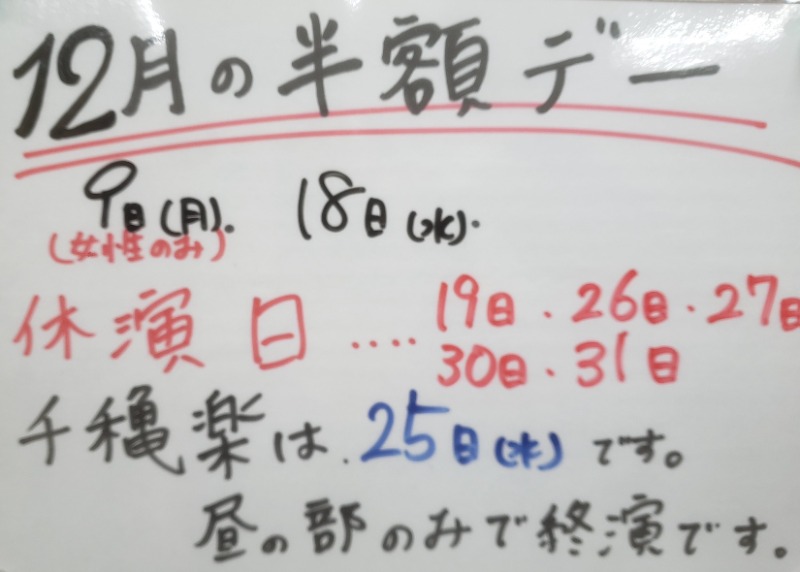 12月の半額デー
9日(月). 18日(水).
(女性のみ)
休演日 .... 19日.26日.27日
30日.31日
千穐楽は.25日(水)です。
昼の部のみで終演です。